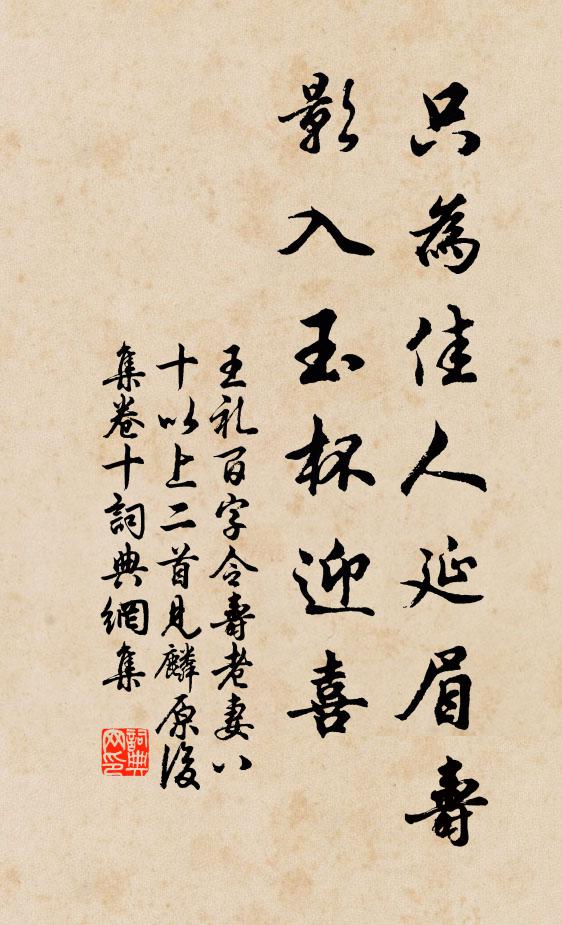 只為佳人延眉壽
影入玉杯迎喜
王礼百字令壽老妻八
十以上二首見麟原後
集卷十詞典網集
詞典
网印